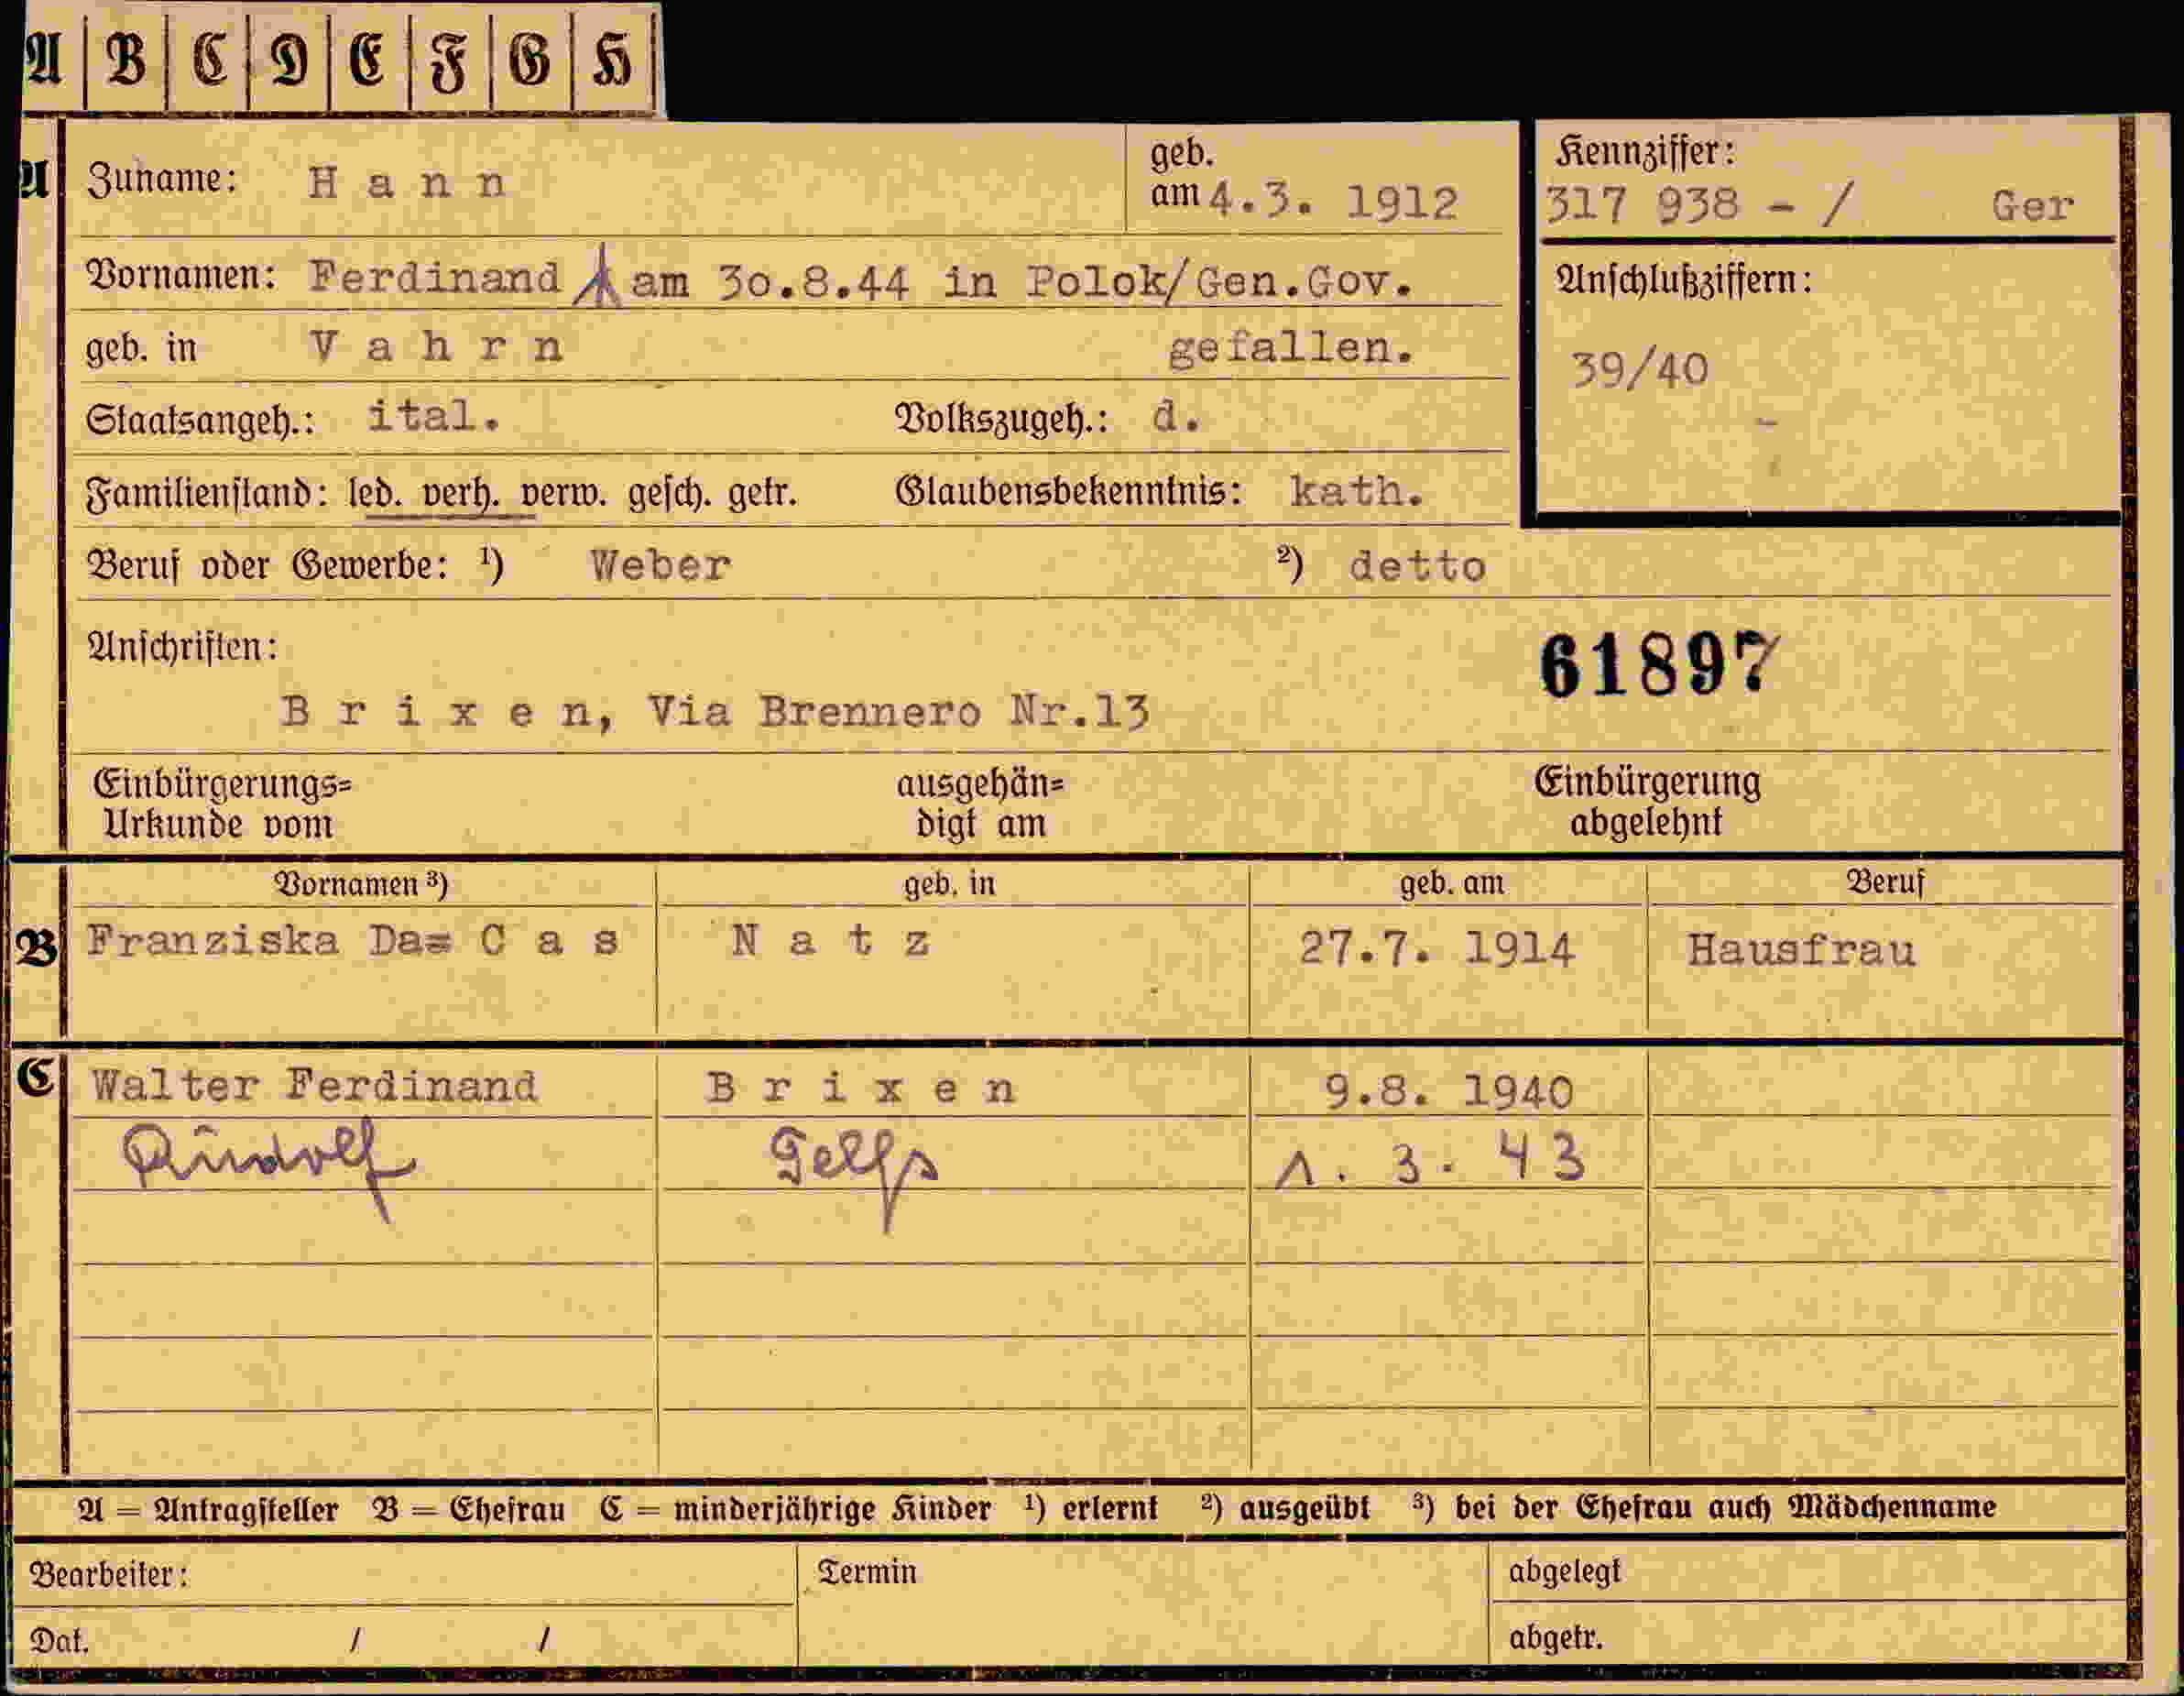 A B C D E F G H
A Zuname: Hann geb. am 4.3. 1912
Kennziffer:
317 938 - / Ger
Vornamen: Ferdinand am 30.8.44 in Polok/Gen.Gov.
Anschlußziffern:
geb. in Vahrn gefallen.
39/40
-
Staatsangeh.: ital. Volkszugeh.: d.
Familienstand: led. verh. verw. gesch. getr. Glaubensbekenntnis: kath.
Beruf oder Gewerbe: ¹) Weber ²) detto
Anschriften:
61897
Brixen, Via Brennero Nr.13
Einbürgerungs= Urkunde vom
ausgehän= digt am
Einbürgerung abgelehnt
Vornamen ³) geb. in geb. am Beruf
B Franziska Da= Cas Natz 27.7. 1914 Hausfrau
C Walter Ferdinand Brixen 9.8. 1940
Rudolf Telfs 1. 3. 43
A = Antragsteller B = Ehefrau C = minderjährige Kinder ¹) erlernt ²) ausgeübt ³) bei der Ehefrau auch Mädchenname
Bearbeiter: Termin abgelegt
Dat. / / abgetr.